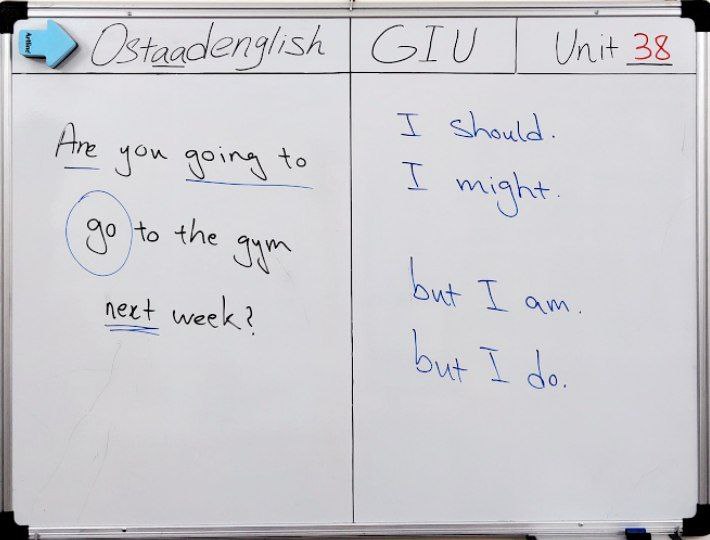 Ostaadenglish
GIU
Unit 38
Are you going to
go to the gym
next week?
I should.
I might.
but I am.
but I do.